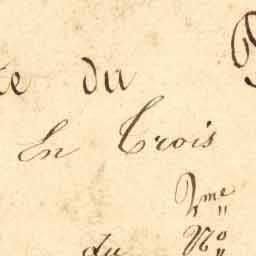 te du
En Trois
2me
No
du